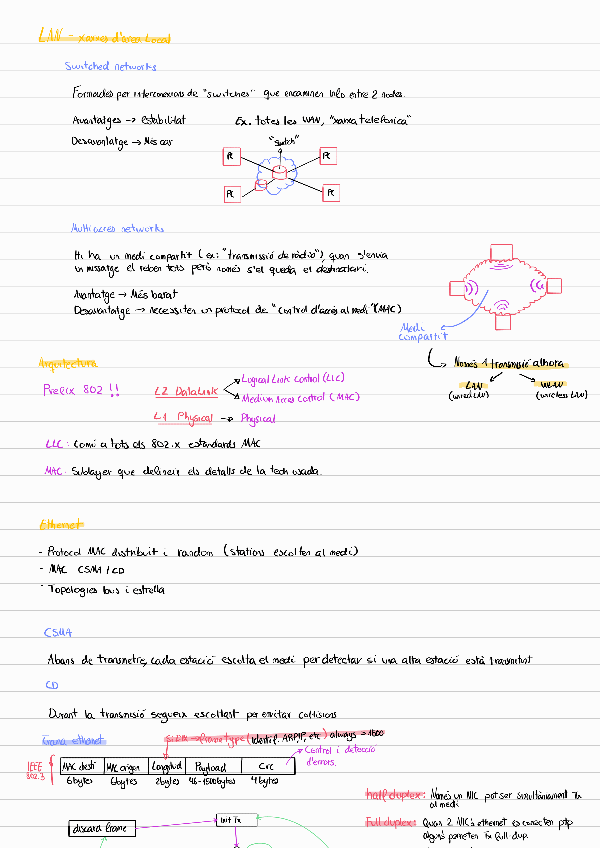 LAN - xarxes d'àrea Local
Switched networks
Formades per interconexions de "switches" que encaminen info entre 2 nodes.
Avantatges → Estabilitat
Ex. totes les WAN, "xarxa telefònica"
Desavantatge → Més car
"Switch"
PC
PC
PC
PC
Multiaccés networks
Hi ha un medi compartit (ex: "transmissió de ràdio"), quan s'envia
un missatge el reben tots però només s'el queda el destinatari.
Avantatge → Més barat
Desavantatge → necessiten un protocol de "Control d'accés al medi" (MAC)
Medi
compartit
Només 1 transmisió alhora
LAN
(wired LAN)
WLAN
(wireless LAN)
Arquitectura
Prefix 802 !!
L2 Data Link
Logical Link Control (LLC)
Medium Acces Control (MAC)
L1 Physical → Physical
LLC: Comú a tots els 802.x estandards MAC
MAC: Sublayer que defineix els detalls de la tech usada.
Ethernet
- Protocol MAC distribuit i random (stations escolten al medi)
- MAC CSMA/CD
- Topologies bus i estrella
CSMA
Abans de transmetre, cada estació escolta el medi per detectar si una alta estació està transmitint
CD
Durant la transmisió segueix escoltant per evitar collisions
Trama ethernet
Si DIX → frame type (identif. ARP, IP, etc) always > 1500
Control i detecció
d'errors.
IEEE
802.3
MAC destí
MAC origen
Longitud
Payload
CRC
6 bytes
6 bytes
2 bytes
46-1500 bytes
4 bytes
half duplex: Només un NIC pot ser simultàniament Tx
al medi
Full duplex: Quan 2 NICs ethernet es conecten ptp
alguns permeten Tx full dup.
discard frame
Init Tx